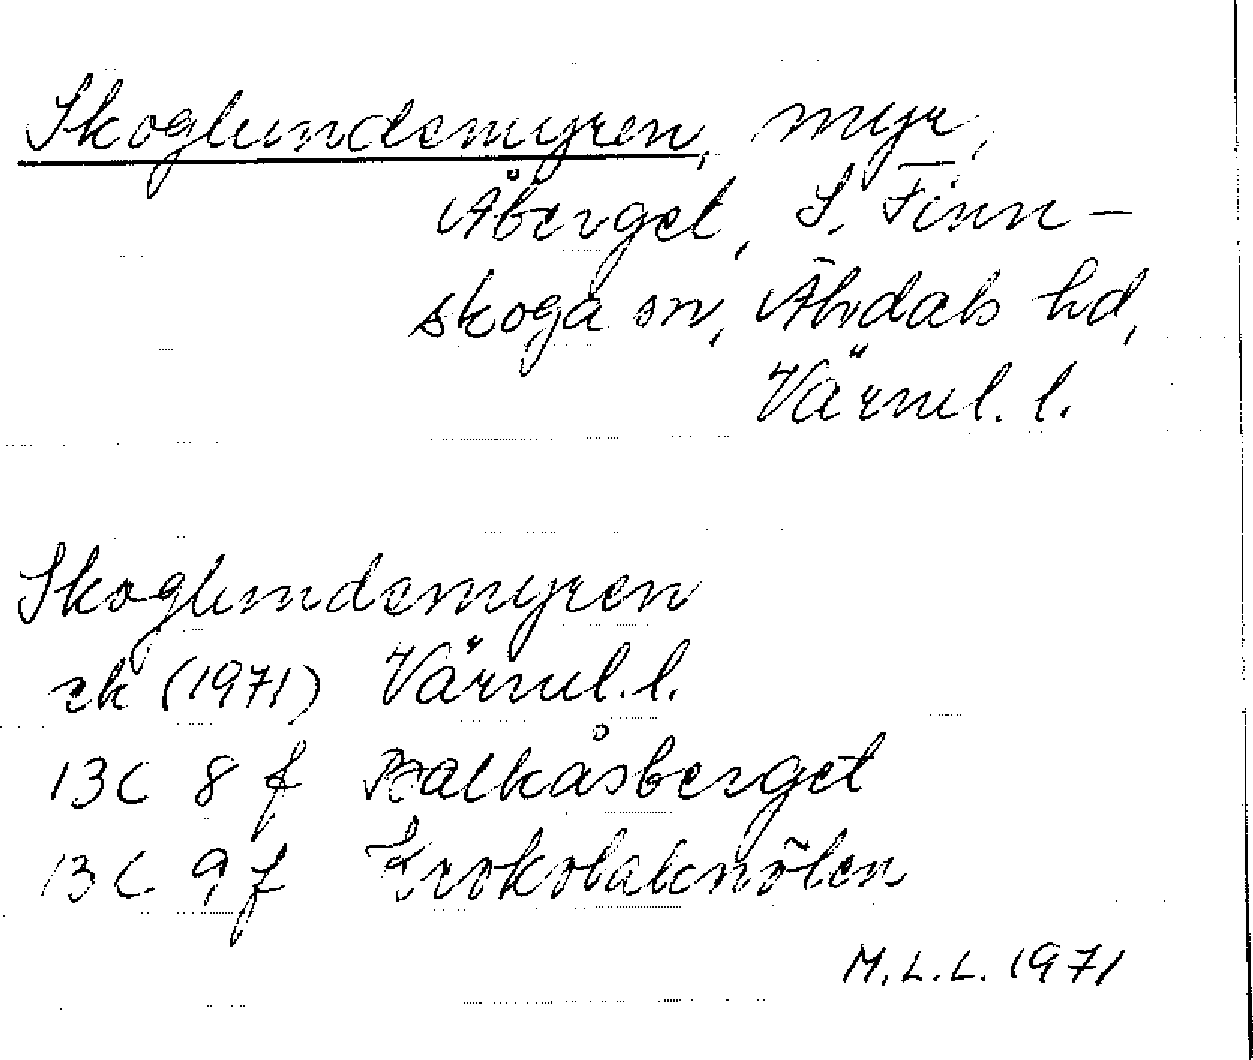 Skoglundsmyren, myr,
Åberget, S. Finn-
skoga sn, Älvdals hd,
Värml. l.
Skoglundsmyren
ek (1971) Värml. l.
13C 8f Balkåsberget
13C 9f Krokolaknölen
M.L.L. 1971